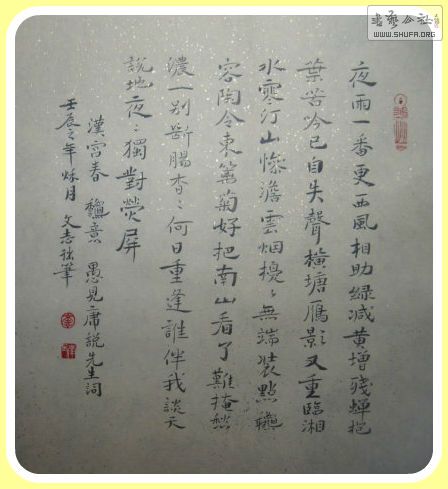 書藝公社
WWW.SHUFA.ORG
夜雨一番更西風相助綠減黃增殘蟬抱
葉苦吟已自失聲橫塘雁影又重臨湘
水寒汀山慘澹雲烟擾〻無端裝點龝
容陶令東籬菊好把南山看了難掩愁
濃一別斷腸杳〻何日重逢誰伴我談天
說地夜〻獨對熒屏
漢宮春 龝意 愚見說先生詞
壬辰之年秌月文志拙筆